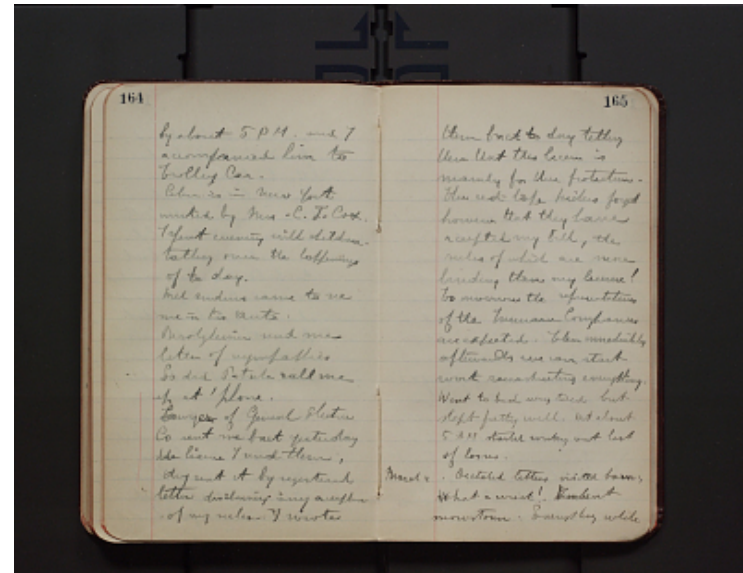 164
by about 5 P.M. and I
accompanied him to
trolley Car.
Celin is in New York
invited by Mrs. C. L. Cox.
I spent evening with children
talking over the happenings
of to day.
me in the auto.
letter of sympathies
So did call me
up at 'phone.
Lawyer of General Electric
Co sent me back yesterday
the license I send them,
they sent it by registered
letter disclaiming any
of my rules. I wrote
165
them back to day telling
them that this license is
merely for their protection.
This red tape forget
however that they have
accepted my bill, the
rules of which are more
binding than my license!
To morrow the representatives
of the Insurance Companies
are expected. Then immediately
afterwards we can start
work reconstructing everything.
Went to bed very tired but
slept fairly well. At about
5 AM started working out list
of losses.
March 2. Dictated letters visited
What a wind!
snowstorm. Everything white